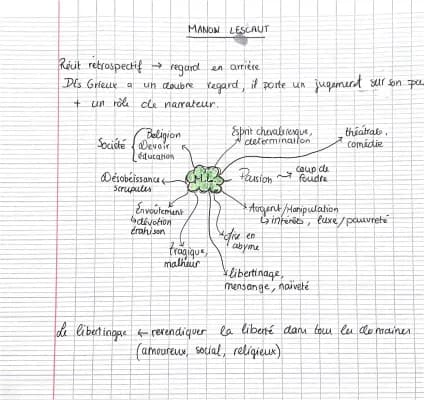 MANON LESCAUT
Récit rétrospectif → regard en arrière
Des Grieux a un double regard, il porte un jugement sur son
+ un rôle de narrateur.
Société { Religion
Devoir
éducation
Esprit chevaleresque,
détermination
théâtrale,
comédie
Désobéissance
scrupules
M.L
Passion → coup de
foudre
Envoûtement
↳ dévotion
trahison
Argent/Manipulation
↳ intérêts, luxe/pauvreté
tragique,
malheur
Mise en
abyme
libertinage,
mensonge, naïveté
Le libertinage ← revendiquer la liberté dans tous les domaines
(amoureux, social, religieux)